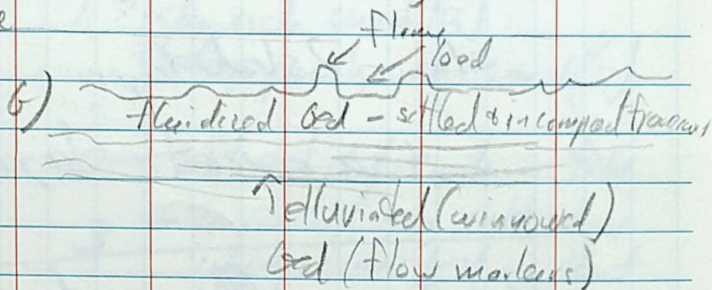 flame
load
6) fluidized bed - settled & incompact
↑ elluviated (winnowed)
bed (flow markers)